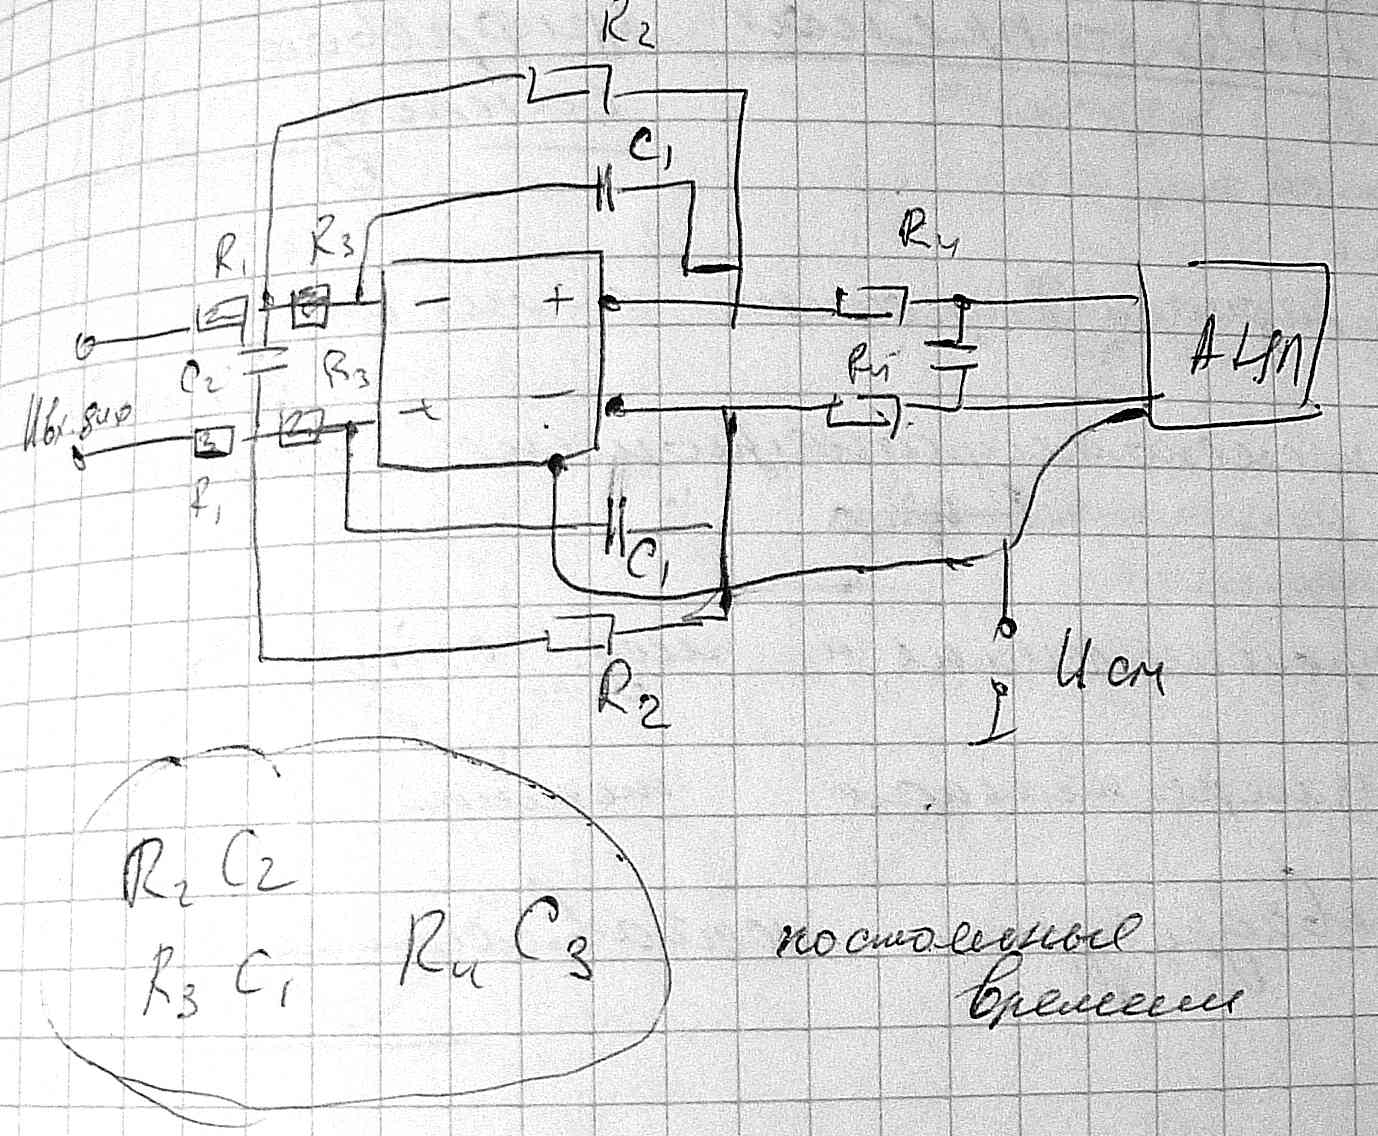 R2
C1
R1
R3
R4
- +
АЦП
C2
R3
R4
Uвх.диф
+ -
R1
C1
Uсм
R2
R2 C2
R4 C3
R3 C1
постоянные
времени